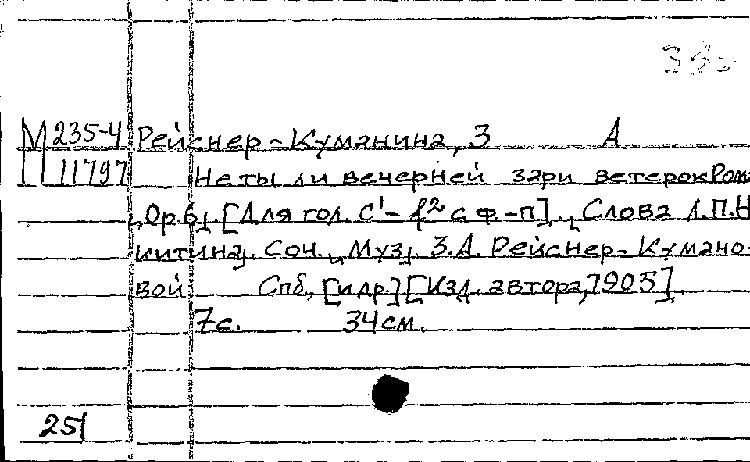 М 235-4 Рейснер-Куманина, З А
11797 Не ты ли вечерней зари ветерок Ром.
Ор.6. [Для гол. c¹-f² с ф-п]. Слова Л.П.Н
икитина, соч. Муз. З.А. Рейснер-Кумано-
вой Спб, [и др.] [Изд. автора, 1905].
7с. 34см.
251